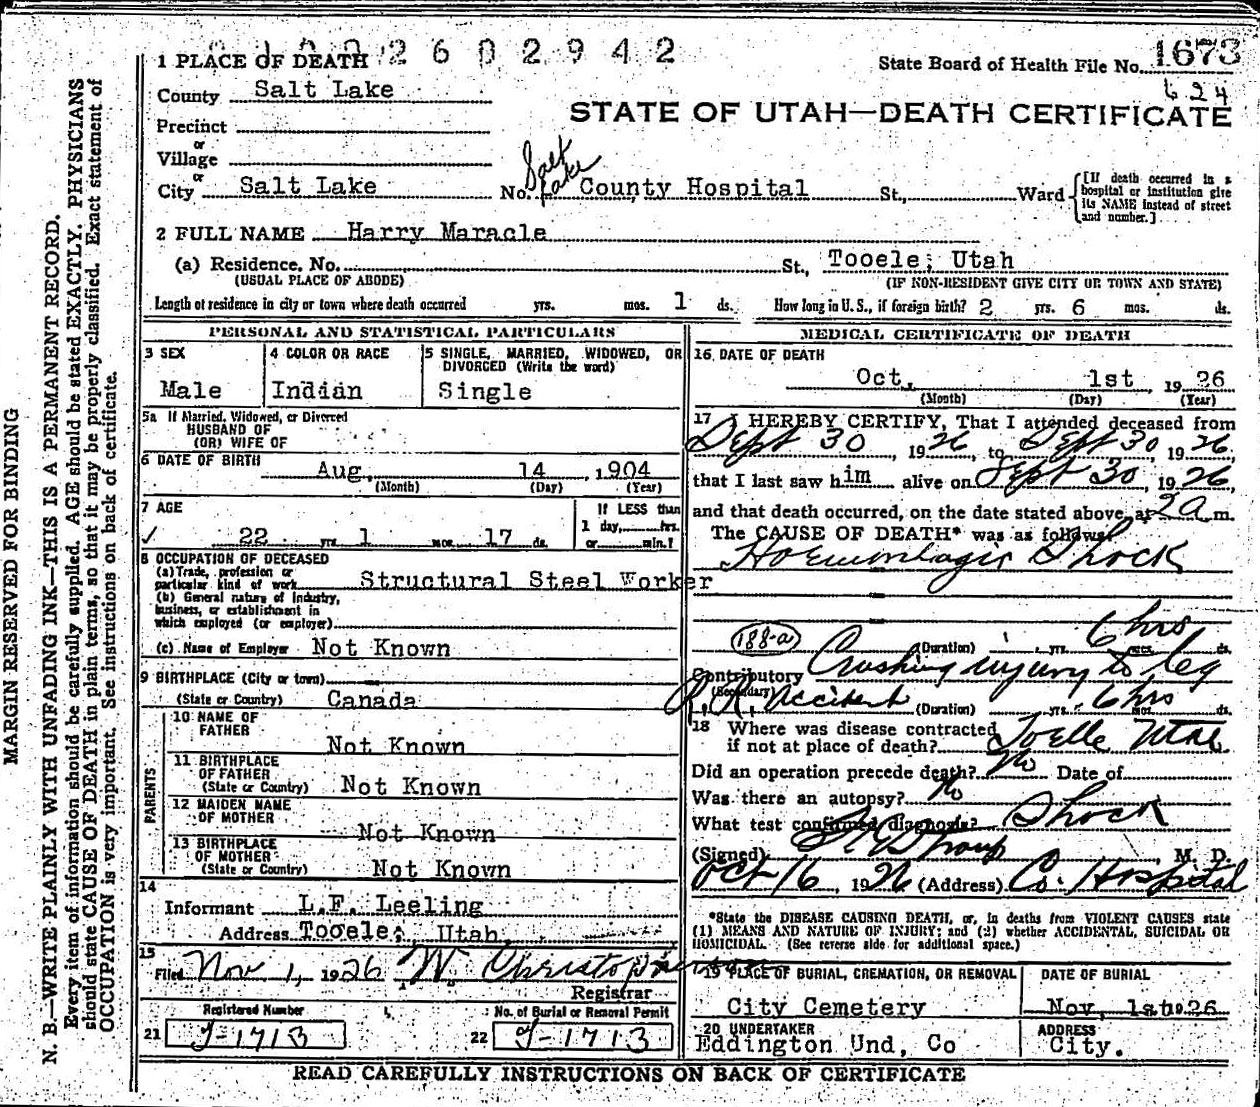 2 6 0 2 9 4 2
1 PLACE OF DEATH
State Board of Health File No. 1673
624
County Salt Lake
STATE OF UTAH—DEATH CERTIFICATE
Precinct
or
Village
or
City Salt Lake No. Salt Lake County Hospital St., Ward
[If death occurred in a hospital or institution give its NAME instead of street and number.]
2 FULL NAME Harry Maracle
(a) Residence. No. St., Tooele, Utah
(USUAL PLACE OF ABODE) (IF NON-RESIDENT GIVE CITY OR TOWN AND STATE)
Length of residence in city or town where death occurred yrs. mos. 1 ds. How long in U. S., if foreign birth? 2 yrs. 6 mos. ds.
PERSONAL AND STATISTICAL PARTICULARS
3 SEX
Male
4 COLOR OR RACE
Indian
5 SINGLE, MARRIED, WIDOWED, OR DIVORCED (Write the word)
Single
5a If Married, Widowed, or Divorced
HUSBAND OF
(OR) WIFE OF
6 DATE OF BIRTH Aug. 14 1904
(Month) (Day) (Year)
7 AGE
22 yrs. 1 mos. 17 ds.
If LESS than
1 day, hrs.
or min.?
8 OCCUPATION OF DECEASED
(a) Trade, profession or
particular kind of work Structural Steel Worker
(b) General nature of Industry,
business, or establishment in
which employed (or employer)
(c) Name of Employer Not Known
9 BIRTHPLACE (City or town)
(State or Country) Canada
PARENTS
10 NAME OF
FATHER Not Known
11 BIRTHPLACE
OF FATHER
(State or Country) Not Known
12 MAIDEN NAME
OF MOTHER Not Known
13 BIRTHPLACE
OF MOTHER
(State or Country) Not Known
14
Informant L.F. Leeling
Address Tooele, Utah
15
Filed Nov 1, 1926 W. Christopherson
Registrar
Registered Number
21 J-1713
No. of Burial or Removal Permit
22 J-1713
MEDICAL CERTIFICATE OF DEATH
16 DATE OF DEATH
Oct. 1st, 1926
(Month) (Day) (Year)
17 I HEREBY CERTIFY, That I attended deceased from
Sept 30, 1926, to Sept 30, 1926,
that I last saw him alive on Sept 30, 1926,
and that death occurred, on the date stated above, at 2 a m.
The CAUSE OF DEATH* was as follows:
Hoemorrhagic Shock
6 hrs
188-a (Duration) yrs. mos. ds.
Contributory Crushing injury to leg
(Secondary) R.R. Accident (Duration) yrs. 6 hrs mos. ds.
18 Where was disease contracted
if not at place of death? Toelle Utah
Did an operation precede death? No Date of
Was there an autopsy? No
What test confirmed diagnosis? Shock
(Signed) M. D.
Oct 16, 1926 (Address) Co. Hospital
*State the DISEASE CAUSING DEATH, or, in deaths from VIOLENT CAUSES state
(1) MEANS AND NATURE OF INJURY; and (2) whether ACCIDENTAL, SUICIDAL OR
HOMICIDAL. (See reverse side for additional space.)
19 PLACE OF BURIAL, CREMATION, OR REMOVAL
City Cemetery
DATE OF BURIAL
Nov, 1st 1926
20 UNDERTAKER
Eddington Und, Co
ADDRESS
City.
READ CAREFULLY INSTRUCTIONS ON BACK OF CERTIFICATE
MARGIN RESERVED FOR BINDING
N. B.—WRITE PLAINLY WITH UNFADING INK—THIS IS A PERMANENT RECORD.
Every item of information should be carefully supplied. AGE should be stated EXACTLY. PHYSICIANS
should state CAUSE OF DEATH in plain terms, so that it may be properly classified. Exact statement of
OCCUPATION is very important. See instructions on back of certificate.